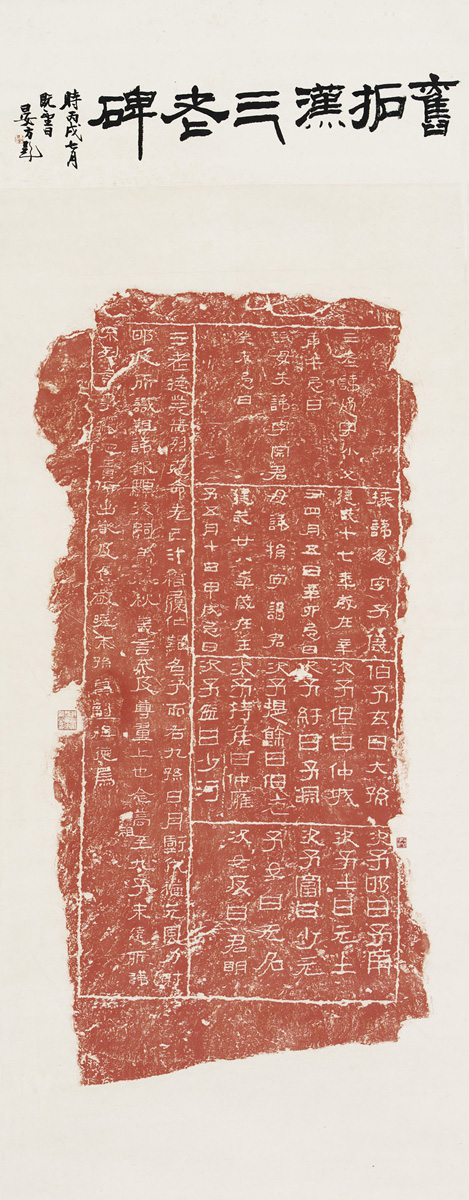 舊拓漢三老碑
時丙戌七月
既望日
三老諱通字小父
庚午忌日
祖母失諱字宗君
癸未忌日
掾諱忽字子儀
建武十七年歲在辛
丑四月五日辛卯忌日
母諱捐字謁君
建武廿八年歲在壬
子五月十日甲戌忌日
伯子玄曰大孫
次子但曰仲城
次子紆曰子淵
次子提餘曰伯老
次子持侯曰仲雍
次子盆曰少河
次子邯曰子南
次子士曰元士
次子富曰少元
子女曰无名
次女反曰君明
三老德業赫烈克命先己汁稽履仁難名兮而右九孫日月虧代猶元風力射
邯及所識祖諱欽顯後嗣蓋春秋義言不及尊翼上也念高祖至九子未遠所諱
不列言事觸忌貴所出嚴及焦敬曉末孫冀副祖德焉